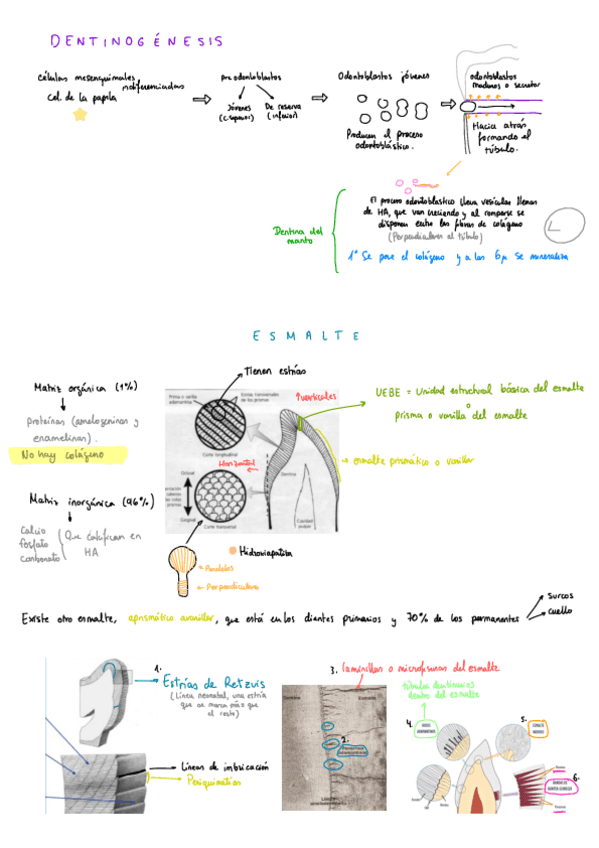 DENTINOGÉNESIS
Células mesenquimales
indiferenciadas
Cel. de la papila
preodontoblastos
Jóvenes
(superior)
De reserva
(inferior)
Odontoblastos jóvenes
Producen el proceso
odontoblástico.
odontoblastos
maduros o secretor
Hacia atrás
formando el
túbulo.
Dentina del
manto
El proceso odontoblastico lleva vesículas llenas
de HA, que van creciendo y al romperse se
disponen entre las fibras de colágeno
(Perpendiculares al túbulo)
1º Se pone el colágeno y a las 6μ se mineraliza
ESMALTE
Tienen estrías
Matriz orgánica (1%)
proteínas (amelogeninas y
enamelinas).
No hay colágeno
Matriz inorgánica (96%)
Calcio
fosfato
carbonato
Que calcifican en
HA
Prisma o varilla
adamantina
Estrías transversales
de los prismas
Corte longitudinal
Horizontal
Oclusal
Gingival
Corte transversal
Dentina
Cavidad
pulpar
↑verticales
UEBE = Unidad estructural básica del esmalte
prisma o varilla del esmalte
esmalte prismático o varillar
Hidroxiapatita
Paralelos
Perpendiculares
Existe otro esmalte, aprismático avarillar, que está en los dientes primarios y 70% de los permanentes
surcos
cuello
1.
Estrías de Retzuis
(Línea neonatal, una estría
que se marca más que
el resto)
Líneas de imbricación
Periquimatías
3. Laminillas o microfisuras del esmalte
2.
túbulos dentinarios
dentro del esmalte
4.
5.
6.